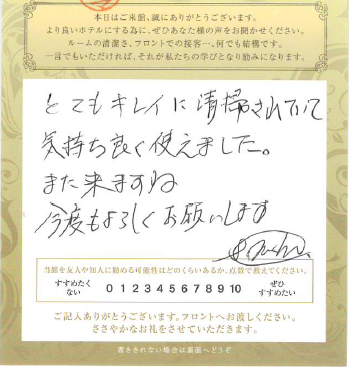 本日はご来館、誠にありがとうございます。
より良いホテルにする為に、ぜひあなた様の声をお聞かせください。
ルームの清潔さ、フロントでの接客…、何でも結構です。
一言でもいただければ、それが私たちの学びとなり励みになります。
とてもキレイに清掃されていて
気持ち良く使えました。
また来ますね
今度もよろしくお願いします
当館を友人や知人に勧める可能性はどのくらいあるか、点数で教えてください。
すすめたくない 0 1 2 3 4 5 6 7 8 9 10 ぜひすすめたい
ご記入ありがとうございます。フロントへお渡しください。
ささやかなお礼をさせていただきます。
書ききれない場合は裏面へどうぞ